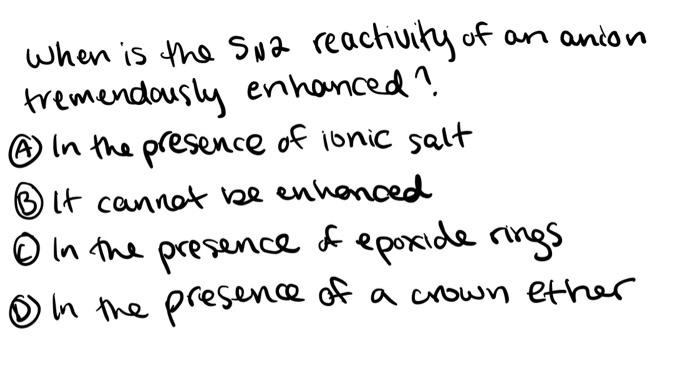 When is the SN2 reactivity of an anion
tremendously enhanced?
Ⓐ In the presence of ionic salt
Ⓑ It cannot be enhanced
Ⓒ In the presence of epoxide rings
Ⓓ In the presence of a crown ether